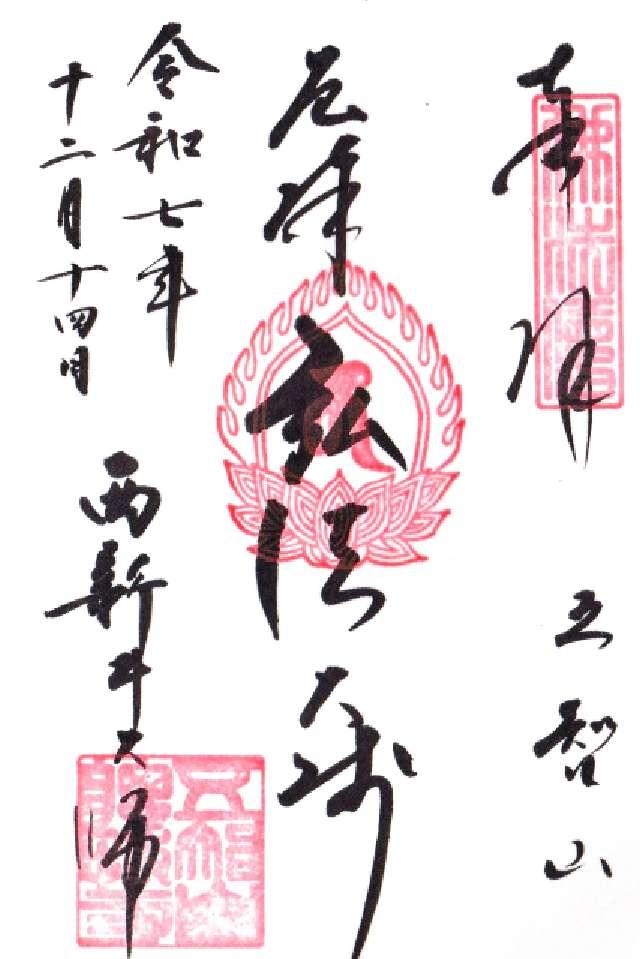 奉拝
五智山
厄除
弘法
大師
令和七年
十二月十四日
西新井大師